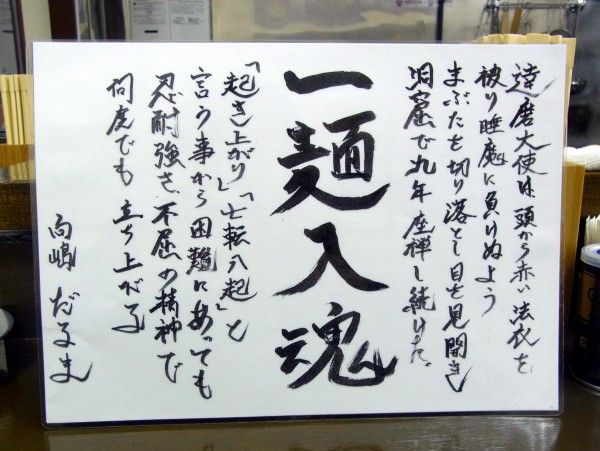 達磨大使は、頭から赤い法衣を
被り睡魔に負けぬよう
まぶたを切り落とし目を見開き
洞窟で九年座禅し続けた。
一麺入魂
「起き上がり」「七転八起」と
言う事から困難にあっても
忍耐強さ、不屈の精神で
何度でも立ち上がる
向嶋だるま